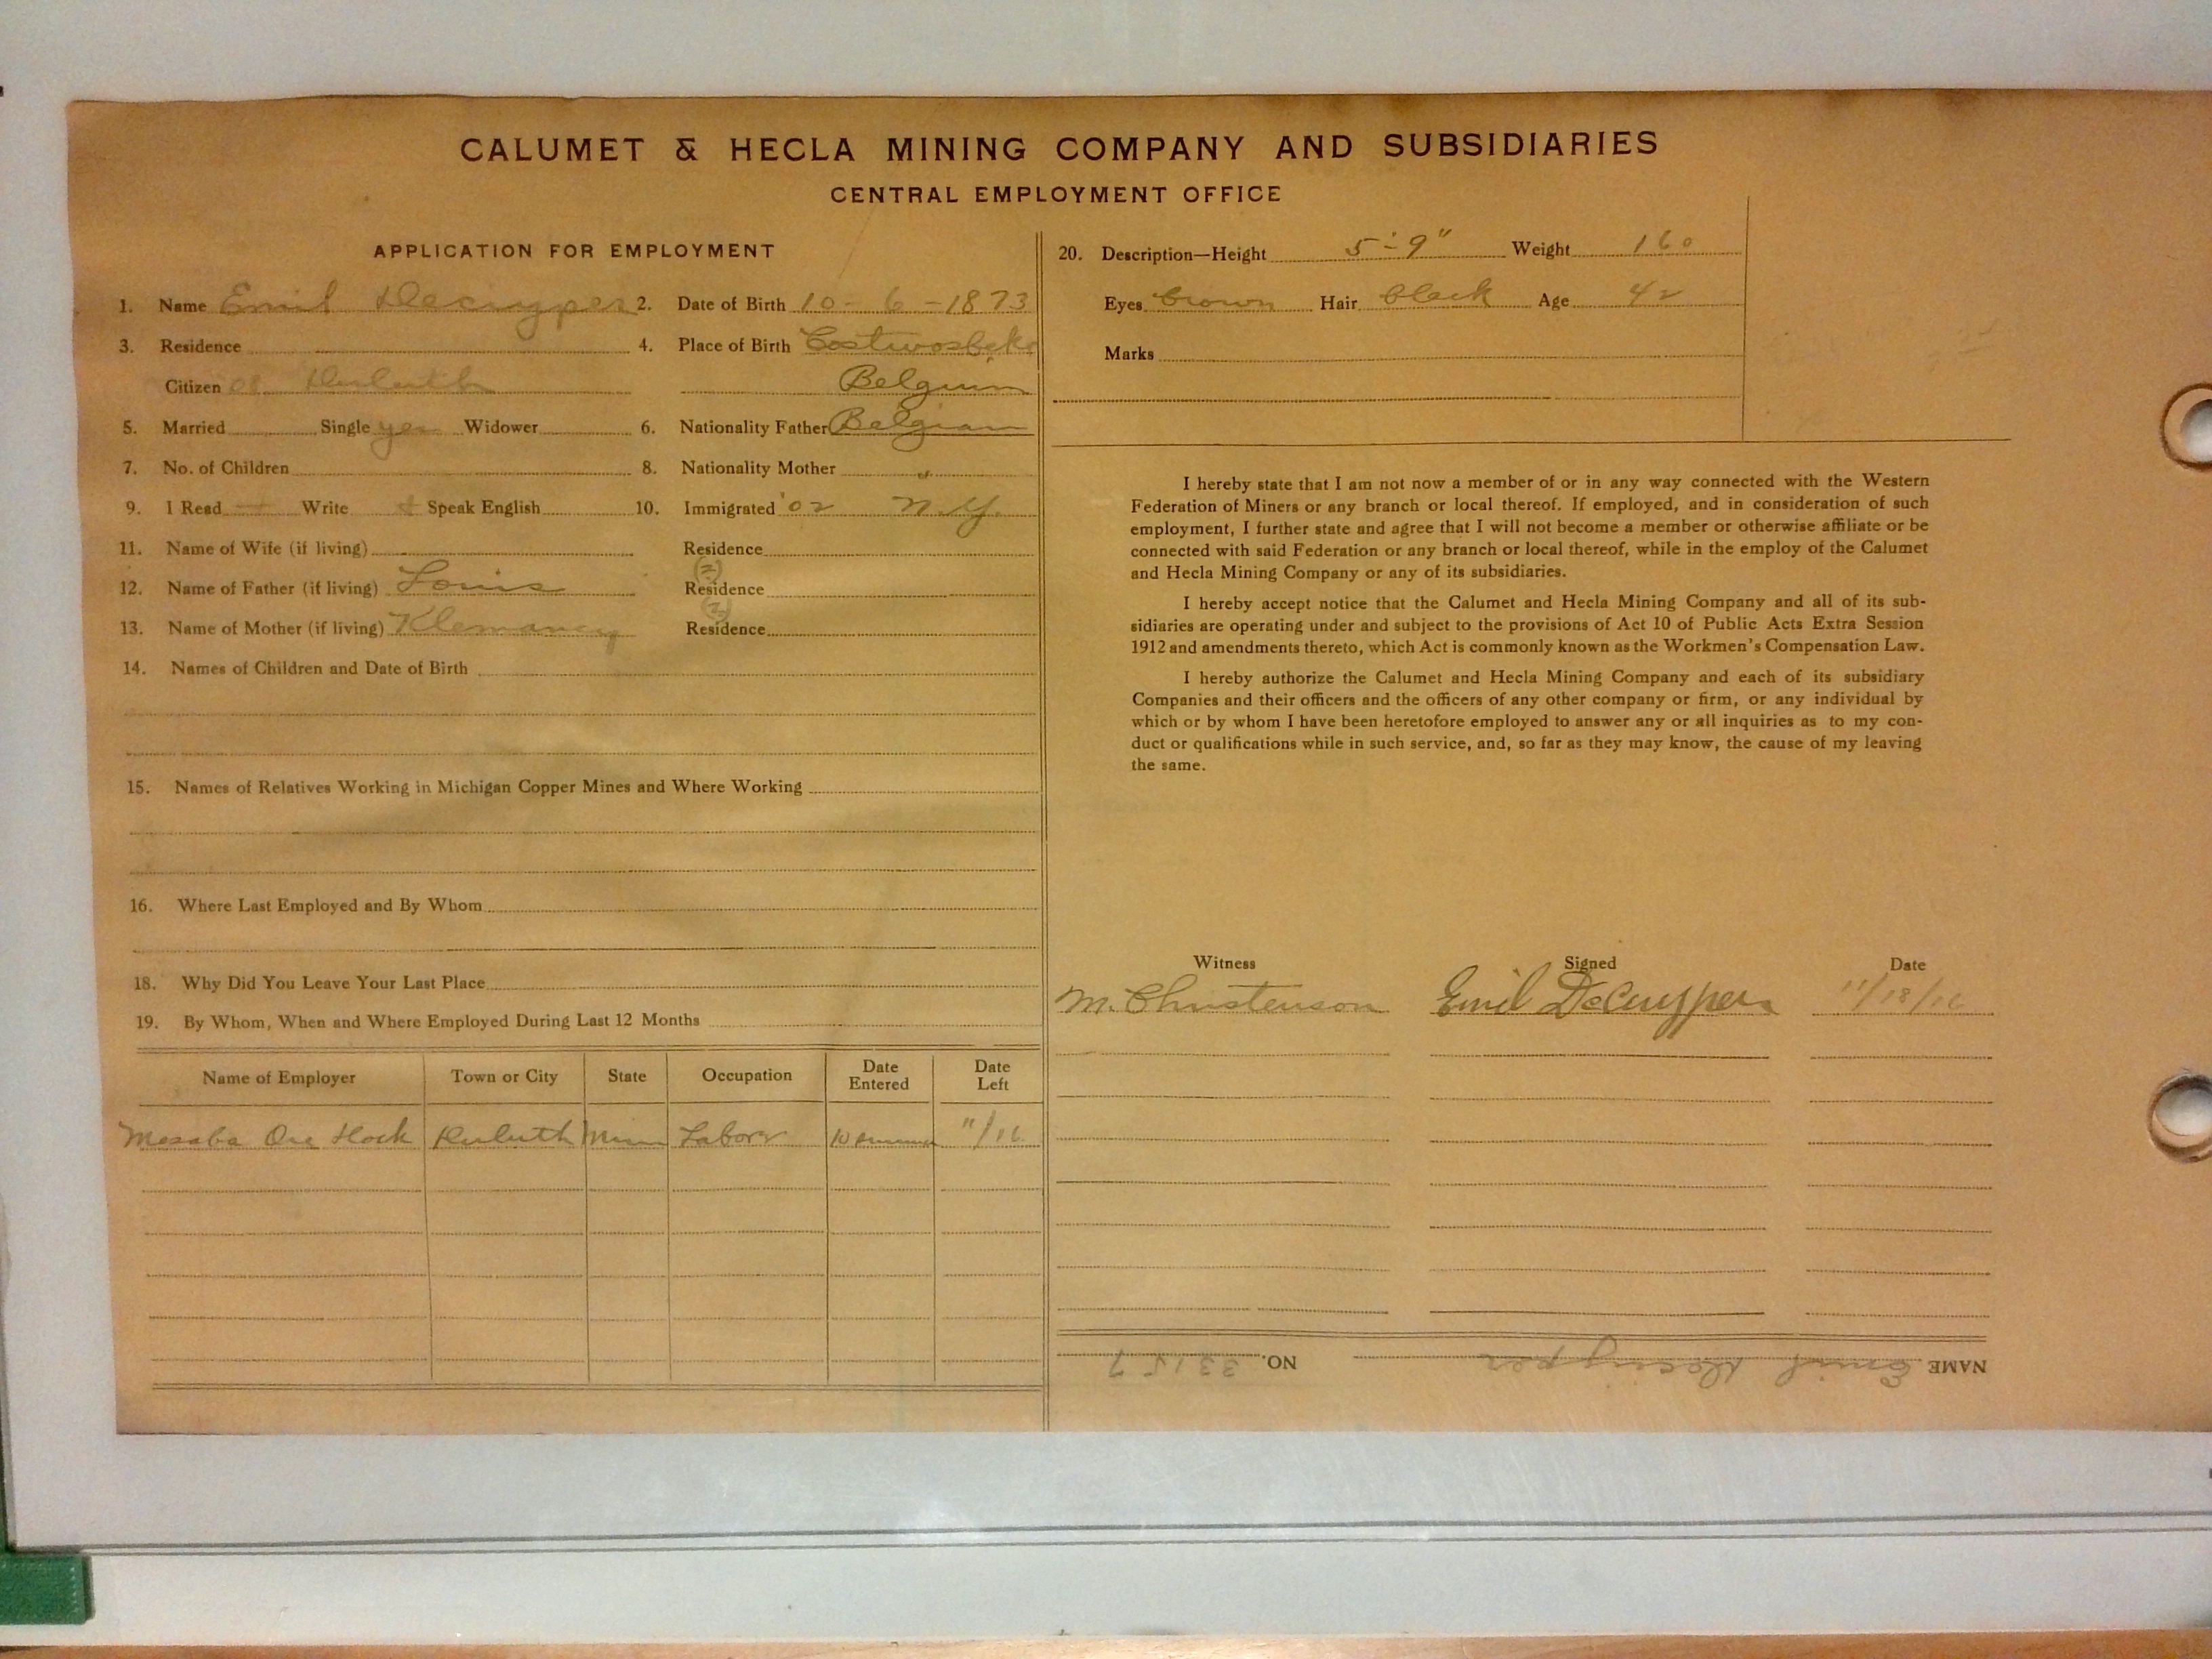 CALUMET & HECLA MINING COMPANY AND SUBSIDIARIES
CENTRAL EMPLOYMENT OFFICE
APPLICATION FOR EMPLOYMENT
1. Name Emil Decuyper 2. Date of Birth 10-6-1873
3. Residence 4. Place of Birth
Citizen 08 Duluth Belgium
5. Married Single yes Widower 6. Nationality Father Belgian
7. No. of Children 8. Nationality Mother "
9. I Read + Write + Speak English 10. Immigrated '02 N.Y.
11. Name of Wife (if living) Residence
12. Name of Father (if living) Louis Residence (?)
13. Name of Mother (if living) Residence (?)
14. Names of Children and Date of Birth
15. Names of Relatives Working in Michigan Copper Mines and Where Working
16. Where Last Employed and By Whom
18. Why Did You Leave Your Last Place
19. By Whom, When and Where Employed During Last 12 Months
Name of Employer Town or City State Occupation Date Entered Date Left
Mesaba Ore Dock Duluth Minn Labor 11/16
20. Description—Height 5'-9" Weight 160
Eyes brown Hair black Age 42
Marks
I hereby state that I am not now a member of or in any way connected with the Western
Federation of Miners or any branch or local thereof. If employed, and in consideration of such
employment, I further state and agree that I will not become a member or otherwise affiliate or be
connected with said Federation or any branch or local thereof, while in the employ of the Calumet
and Hecla Mining Company or any of its subsidiaries.
I hereby accept notice that the Calumet and Hecla Mining Company and all of its sub-
sidiaries are operating under and subject to the provisions of Act 10 of Public Acts Extra Session
1912 and amendments thereto, which Act is commonly known as the Workmen's Compensation Law.
I hereby authorize the Calumet and Hecla Mining Company and each of its subsidiary
Companies and their officers and the officers of any other company or firm, or any individual by
which or by whom I have been heretofore employed to answer any or all inquiries as to my con-
duct or qualifications while in such service, and, so far as they may know, the cause of my leaving
the same.
Witness Signed Date
M. Christenson Emil DeCuyper 11/18/16
NAME Emil Decuyper NO. 33157